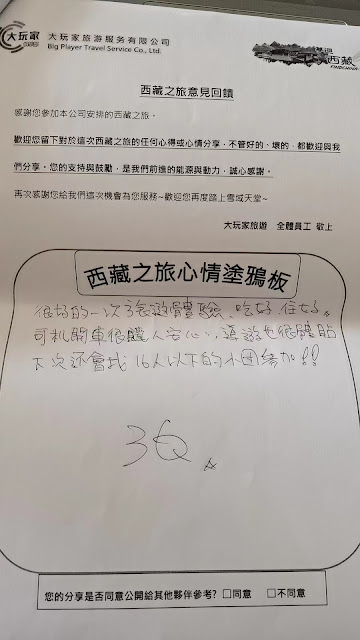 大玩家
大玩家旅游服务有限公司
Big Player Travel Service Co., Ltd.
西藏
西藏之旅意見回饋
感謝您參加本公司安排的西藏之旅。
歡迎您留下對於這次西藏之旅的任何心得或心情分享，不管好的、壞的，都歡迎與我
們分享。您的支持與鼓勵，是我們前進的能源與動力，誠心感謝。
再次感謝您給我們這次機會為您服務~歡迎您再度踏上雪域天堂~
大玩家旅遊　全體員工 敬上
西藏之旅心情塗鴉板
很好的一次旅遊體驗、吃好、住好。
司机開車很讓人安心，導遊也很體貼
下次还會找16人以下的小團參加!!
3Q
您的分享是否同意公開給其他夥伴參考? □同意　□不同意